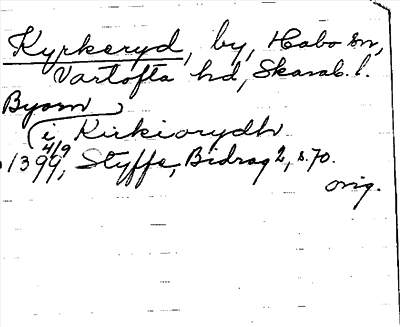 Kyrkeryd, by, Habo sn,
Vartofta hd, Skarab. l.
Byarn
(i Kirkiorydh
4/9
1399, Styffe, Bidrag 2, s. 70.
orig.